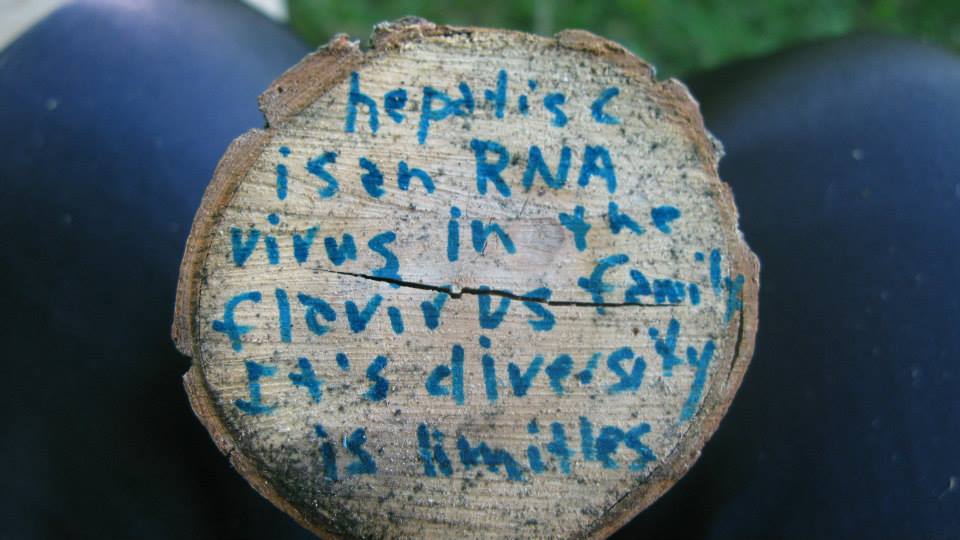 hepatis c
is an RNA
virus in the
flavirus family
It's diversity
is limitles